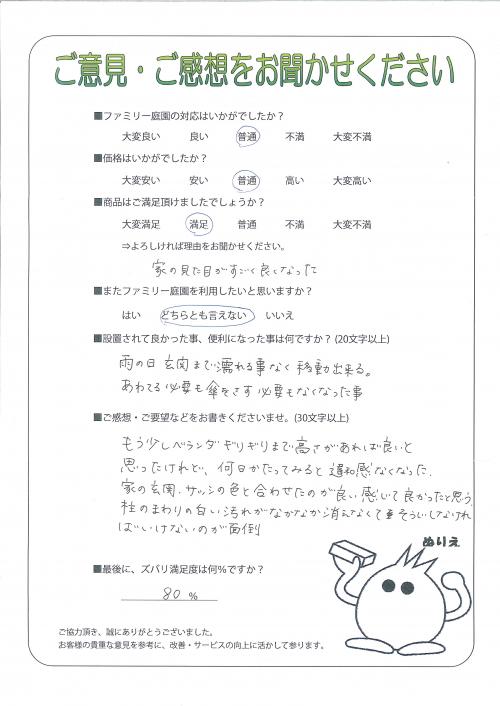 ご意見・ご感想をお聞かせください
■ファミリー庭園の対応はいかがでしたか？
大変良い 良い 普通 不満 大変不満
■価格はいかがでしたか？
大変安い 安い 普通 高い 大変高い
■商品はご満足頂けましたでしょうか？
大変満足 満足 普通 不満 大変不満
⇒よろしければ理由をお聞かせください。
家の見た目がすごく良くなった
■またファミリー庭園を利用したいと思いますか？
はい どちらとも言えない いいえ
■設置されて良かった事、便利になった事は何ですか？(20文字以上)
雨の日 玄関まで濡れる事なく移動出来る。
あわてる必要も傘をさす必要もなくなった事
■ご感想・ご要望などをお書きくださいませ。(30文字以上)
もう少しベランダギリギリまで高さがあれば良いと
思ったけれど、何日かたってみると違和感なくなった.
家の玄関.サッシの色と合わせたのが良い感じで良かったと思う.
柱のまわりの白い汚れがなかなか消えなくて そうじしなけれ
ばいけないのが面倒
ぬりえ
■最後に、ズバリ満足度は何％ですか？
80 %
ご協力頂き、誠にありがとうございました。
お客様の貴重な意見を参考に、改善・サービスの向上に活かして参ります。